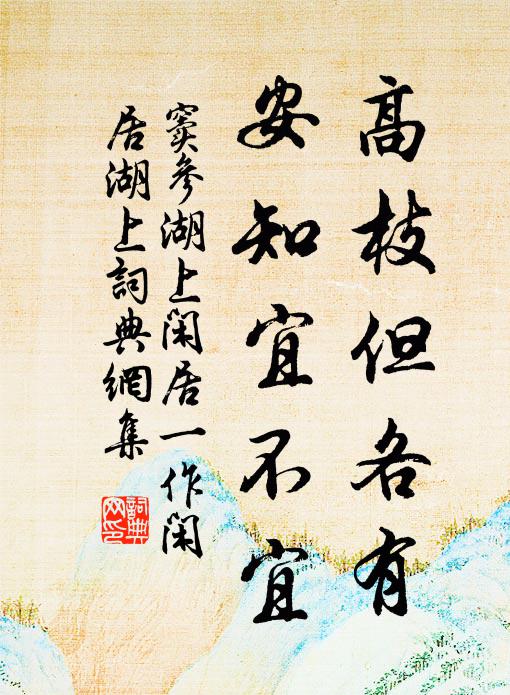 高枝但各有
安知宜不宜
竇參湖上閑居一作閑
居湖上詞典網集
詞典网印